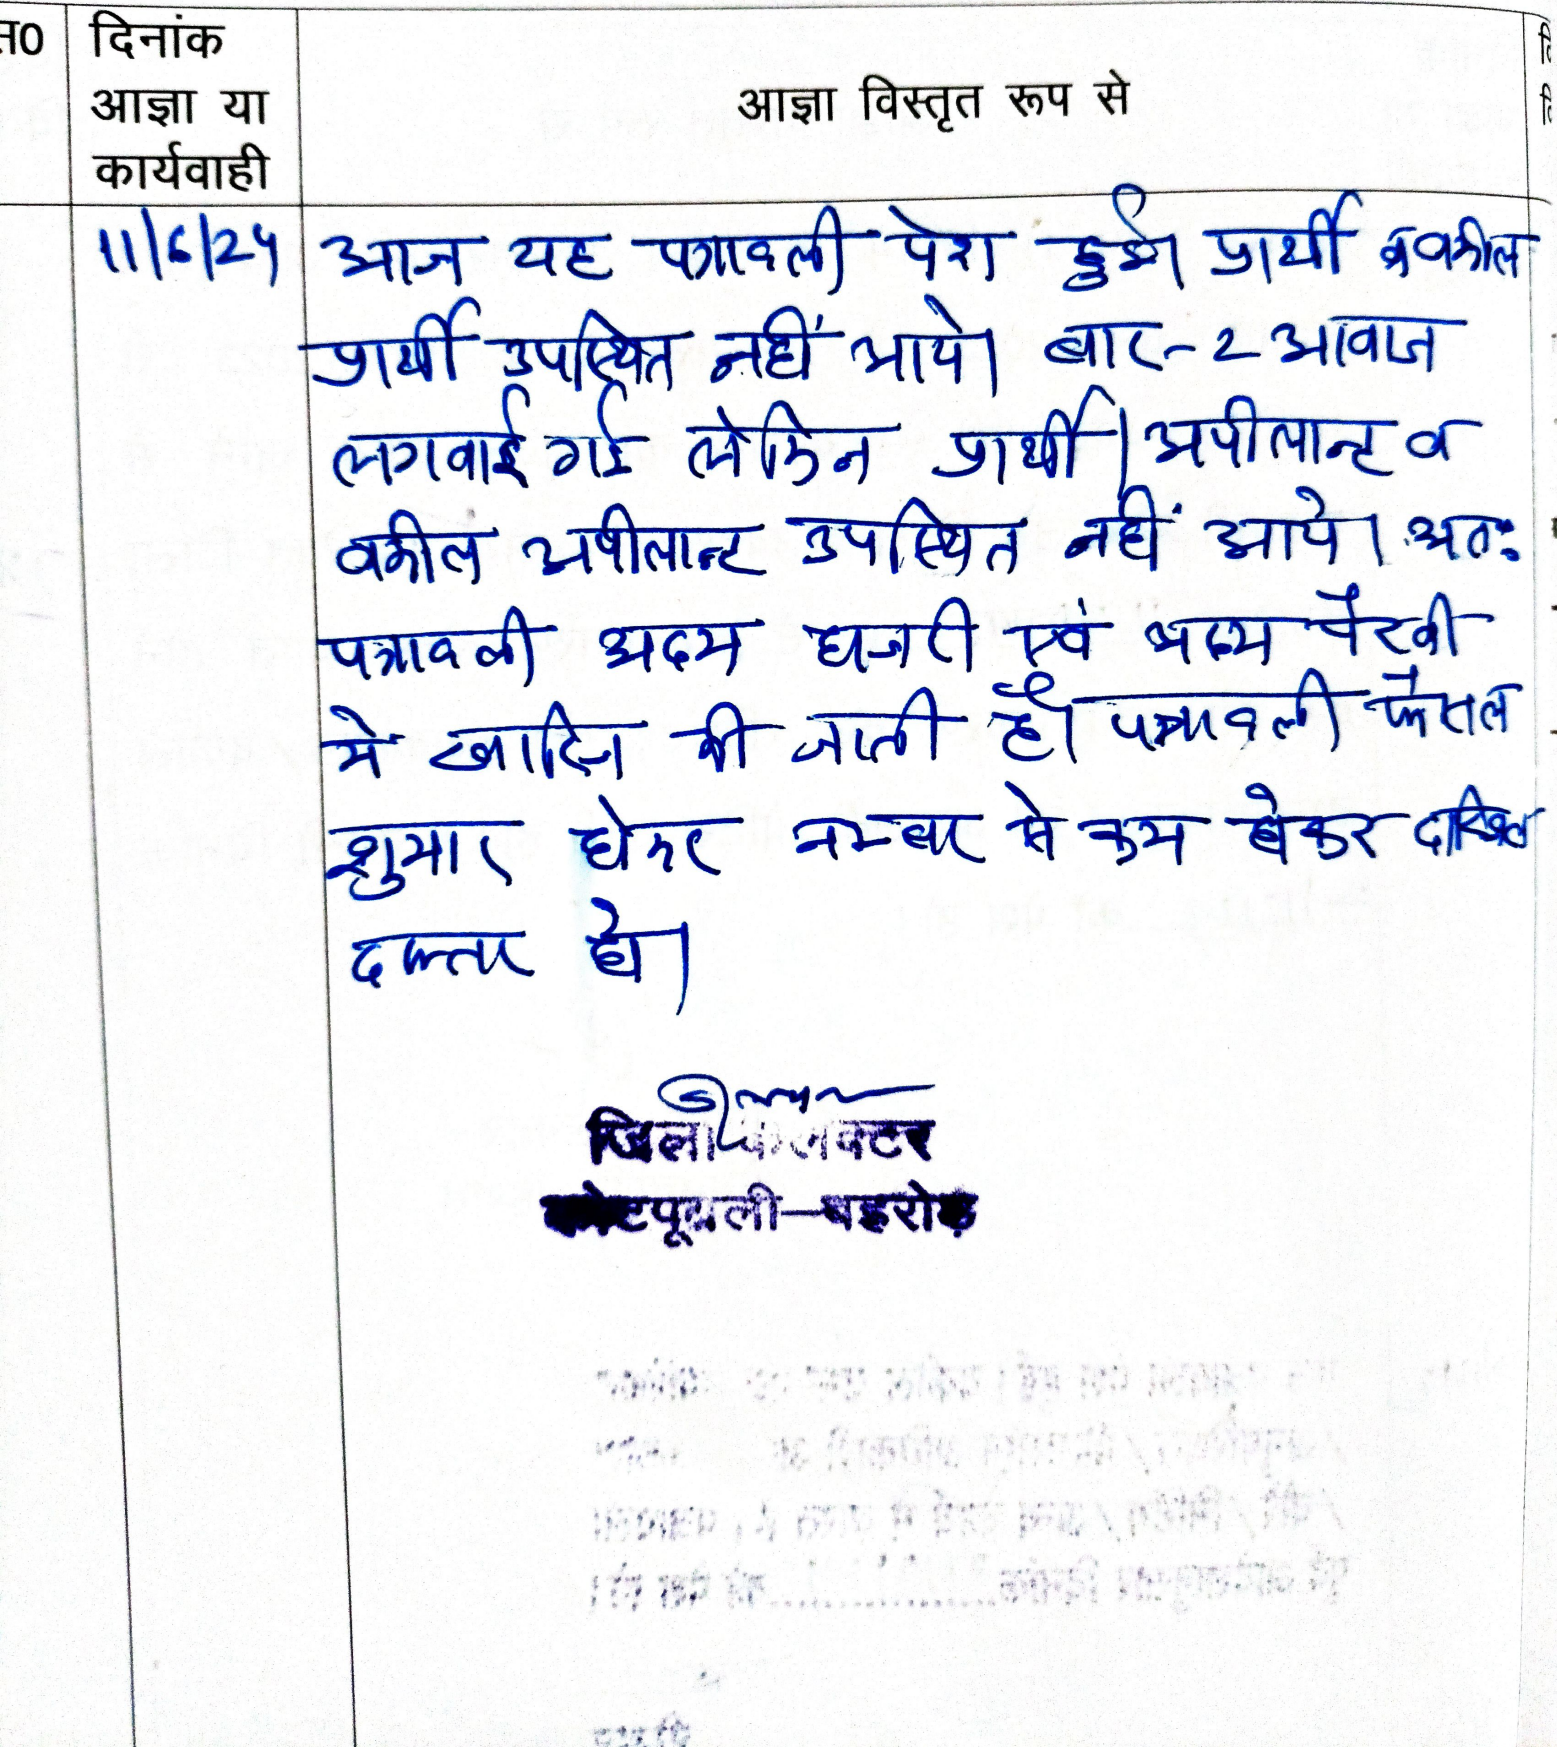 स0
दिनांक
आज्ञा या
कार्यवाही
आज्ञा विस्तृत रूप से
11/6/25 आज यह पत्रावली पेश हुई। प्रार्थी व वकील
प्रार्थी उपस्थित नहीं आये। बार-2 आवाज
लगवाई गई लेकिन प्रार्थी/अपीलान्ट व
वकील अपीलान्ट उपस्थित नहीं आये। अतः
पत्रावली अदम हाजरी एवं अदम पैरवी
मे खारिज की जाती है। पत्रावली फैसल
शुमार होकर नम्बर से कम होकर दाखिल
दफ्तर हो।
जिला कलक्टर
कोटपूतली-बहरोड़